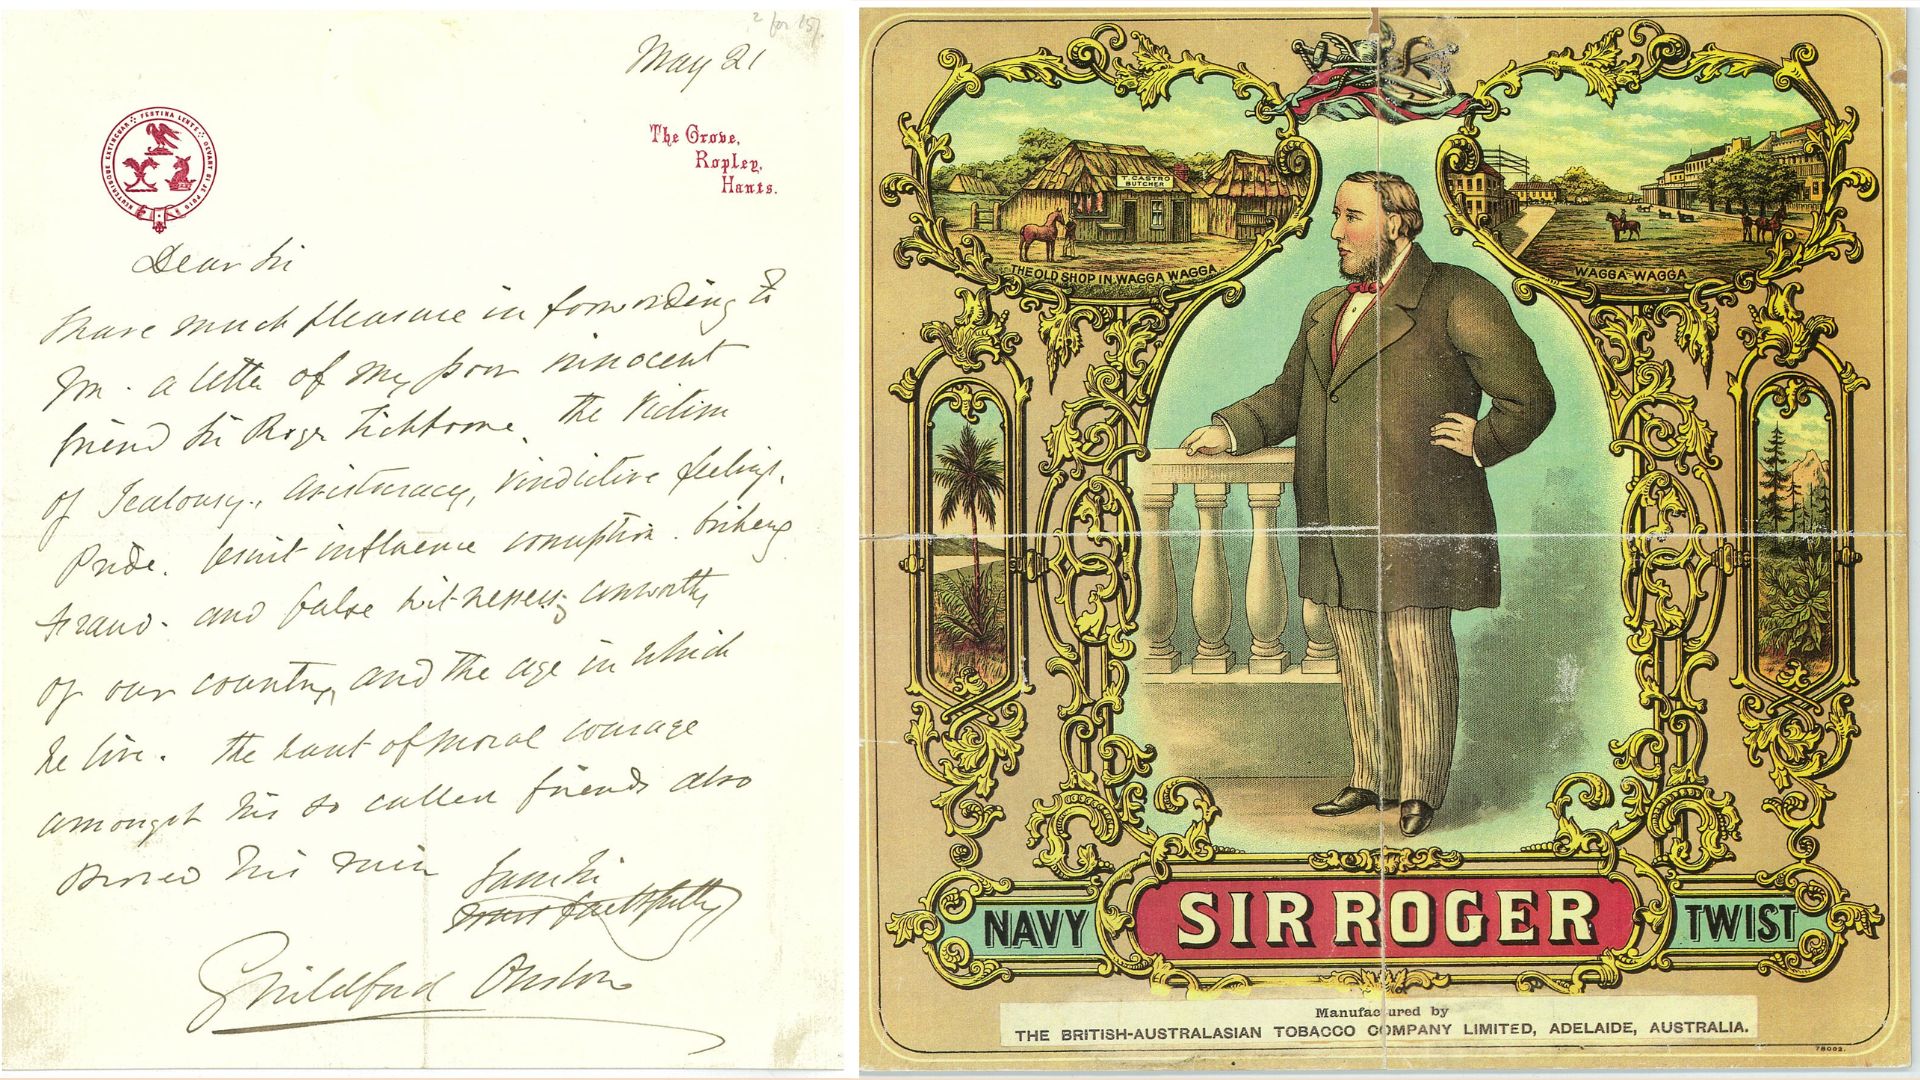 2 for 15/.
May 21
FESTINA LENTE
The Grove,
Ropley,
Hants.
Dear Sir
I have much pleasure in forwarding to
you. a letter of my poor innocent
friend Sir Roger Tichborne, the victim
of Jealousy, aristocracy, vindictive feelings,
Pride. Jesuit influence corruption. bribery
fraud. and false witnesses; unworthy
of our country, and the age in which
we live. The want of moral courage
amongst his so called friends also
proved his ruin
I am Sir
Yours faithfully
Guildford Onslow
T. CASTRO
BUTCHER
THE OLD SHOP IN WAGGA WAGGA
WAGGA WAGGA
NAVY SIR ROGER TWIST
Manufactured by
THE BRITISH-AUSTRALASIAN TOBACCO COMPANY LIMITED, ADELAIDE, AUSTRALIA.
78002.